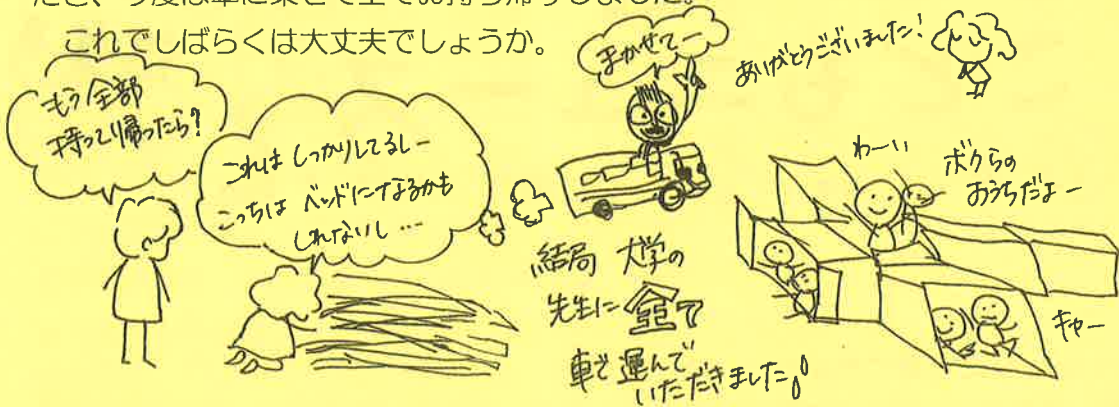 これでしばらくは大丈夫でしょうか。
もう全部
持って帰ったら?
これは しっかりしてるしー
こっちは ベッドになるかも
しれないし…
まかせてー
ありがとうございました!
結局 大学の
先生に全て
車で運んで
いただきました。
わーい
ボクらの
おうちだよー
キャー